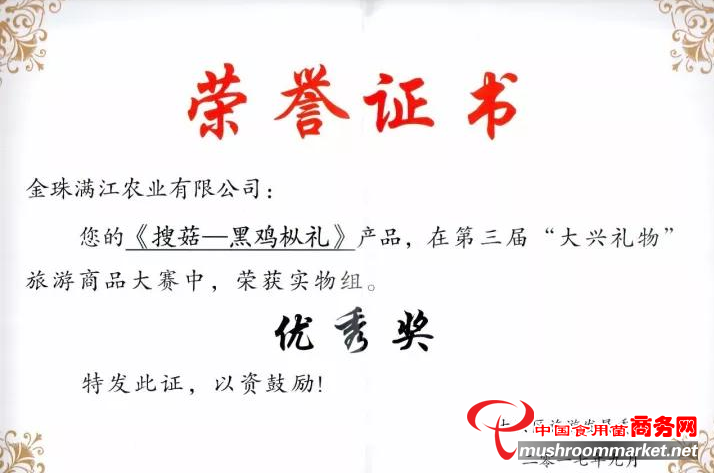 荣誉证书
金珠满江农业有限公司：
您的《搜菇—黑鸡枞礼》产品，在第三届“大兴礼物”
旅游商品大赛中，荣获实物组。
优秀奖
特发此证，以资鼓励！
中国食用菌商务网
www.mushroommarket.net
二零一七年九月